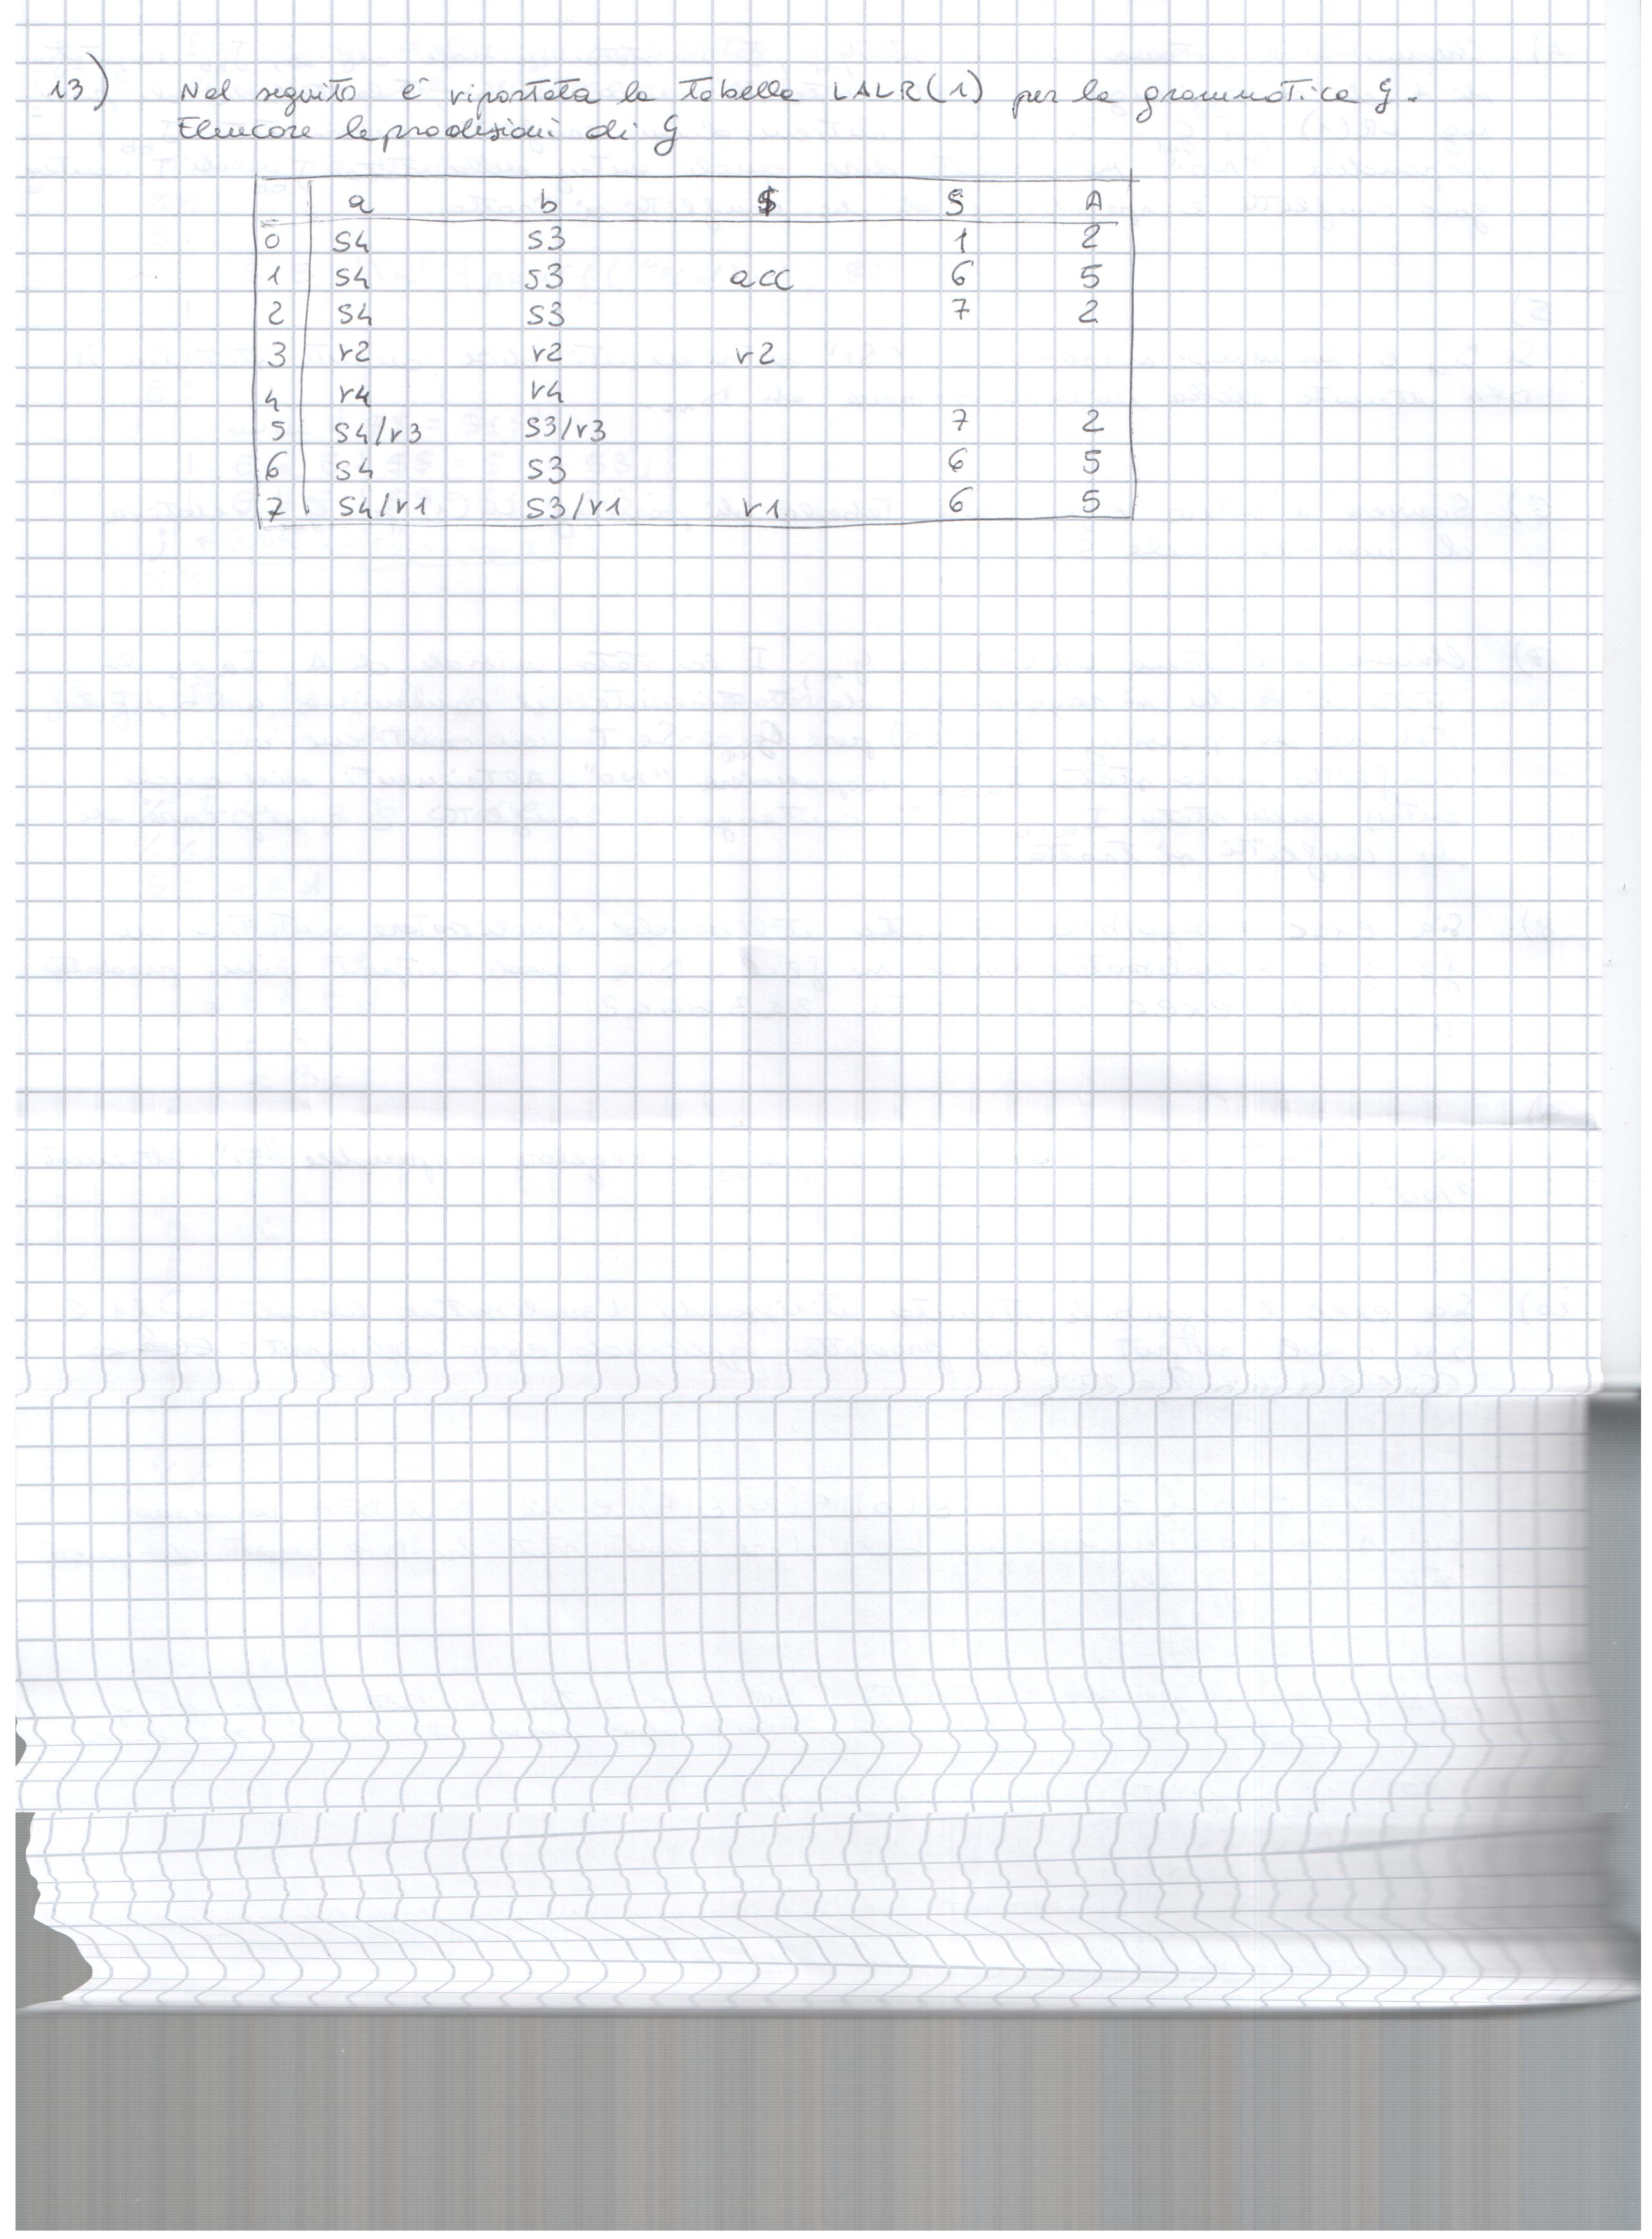 13) Nel seguito è riportata la tabella LALR(1) per la grammatica G.
Elencare le produzioni di G
a b $ S A
0 s4 s3 1 2
1 s4 s3 acc 6 5
2 s4 s3 7 2
3 r2 r2 r2
4 r4 r4
5 s4/r3 s3/r3 7 2
6 s4 s3 6 5
7 s4/r1 s3/r1 r1 6 5